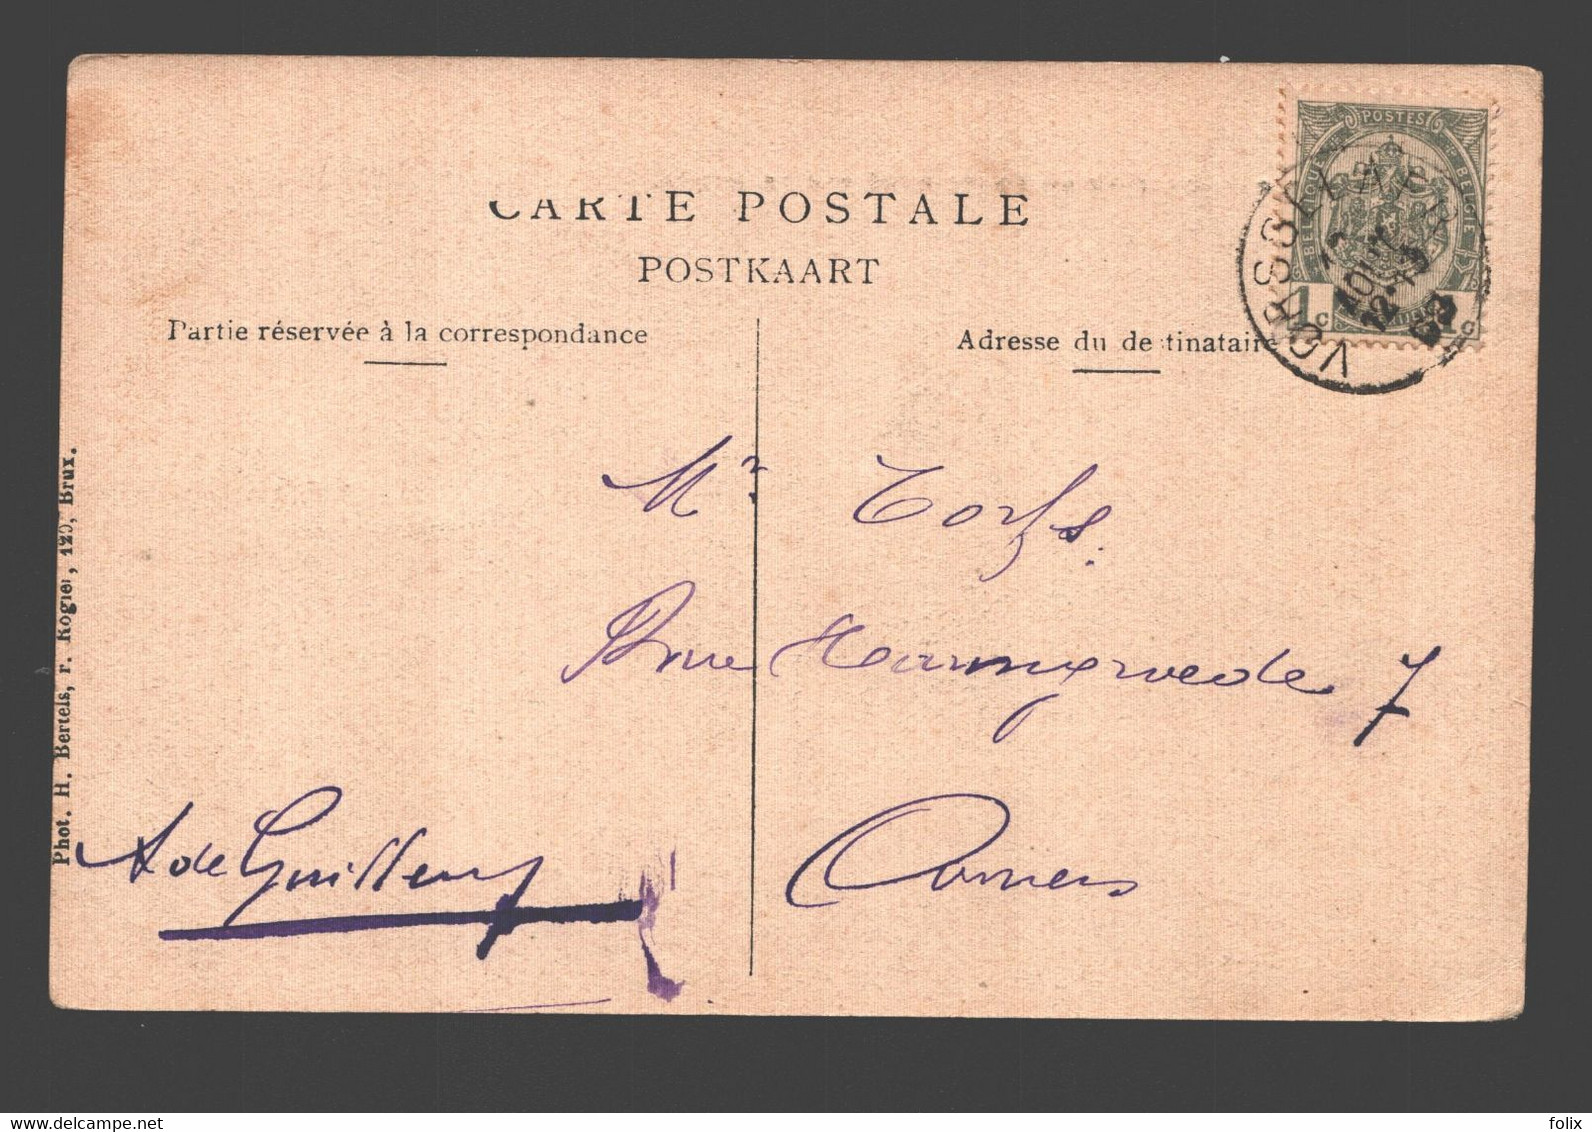 CARTE POSTALE
POSTKAART
Partie réservée à la correspondance
Adresse du de tinataire
POSTES
BELGIQUE BELGIE
1c 1c
VORSSELAER
AOUT
12-13
Phot. H. Bertels, r. Rogier, 120, Brux.
Mr Torfs.
Rue 7
Anvers
A de
delcampe.net
folix